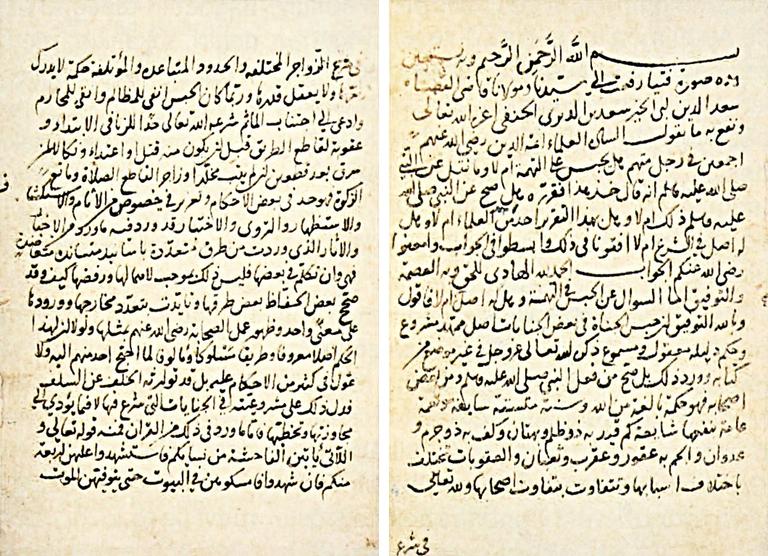 بسم الله الرحمن الرحيم وبه نستعين
هذه صورة فتيا رفعت الى سيدنا ومولانا قاضي القضاة
سعد الدين ابي الخير سعد بن الديري الحنفي اعز الله تعالى
ونفع به ما تقول السادة العلماء ائمة الدين رضي الله عنهم
اجمعين في رجل متهم هل يحبس على التهمة ام لا وما نقل عن النبي
صلى الله عليه وسلم انه قال هل صح عن النبي صلى الله
عليه وسلم ذلك ام لا وهل بهذا احد من العلماء ام لا وهل
له اصل في الشرع ام لا افتونا في ذلك وابسطوا في الجواب
رضي الله عنكم الجواب الحمد لله الهادي للحق وبه العصمة
والتوفيق اما السوال عن الحبس في التهمة وهل له اصل ام لا فاقول
وبالله التوفيق ان حبس الجناة في بعض الجنايات اصل ممهد مشروع
وحكم دليله معقول في مسموع ذكره الله تعالى عز وجل في غير موضع من
كتابه وورد ذلك بل صح من فعل النبي صلى الله عليه وسلم ومن بعض
اصحابه فهو حكمة بالغة من الله وسنة سابغة ونعمة
عامة نفعها شايعة كم قيد به ذو ظلم وبهتان وكف به ذو جرم و
عدوان والجم به عقور وعقرب وثعبان والعقوبات تختلف
باختلاف اسبابها وتتفاوت بتفاوت اصحابها ولله تعالى
في شرع
في شرع الزواجر المختلفة والحدود المتباعدة والمؤتلفة حكمة لا يدرك
ولا يعقل قدرها وربما كان الحبس انفى للمظالم وانفى للمحارم
وادعى الى اجتناب الماثم شرعه الله تعالى حدا للزنا في الابتداء و
عقوبة لقاطع الطريق قبل ان يكون منه قتل او اعتداء ونكالا لمن
سرق بعد قطعين وزاجر القاطع الصلاة ومانع
الزكوة فهو حد في بعض الاحكام وتعزير في خصوص من الاثام
والاستظهار والتروي والاختبار قد وردت فيه ماثور من الاخبار
والاثار الذي وردت من طرق متعددة باسانيد متساندة متعاضدة
فهي وان تكلم في بعضها فليس ذلك بموجب لاهمالها ورفضها كيف وقد
صحح بعض الحفاظ بعض طرقها وتايدت بتعدد مخارجها وورودها
على معنى واحد وظهور عمل الصحابة رضي الله عنهم بمثلها ولولا ان لهذا
الحكم اصلا معروفا وطريقا مسلوكا ومالوفا لما احتج احد منهم اليه ولا
عول في كثير من الاحكام عليه بل قد توارثه الخلف عن السلف
فدل ذلك على مشروعيته في الجنايات التي شرع فيها لا فيما يؤدي الى
مجاوزتها وتخطيها فاما ما ورد في ذلك من القران فمنه قوله تعالى و
اللاتي ياتين الفاحشة من نسايكم فاستشهدوا عليهن اربعة
منكم فان شهدوا فامسكوهن في البيوت حتى يتوفيهن الموت